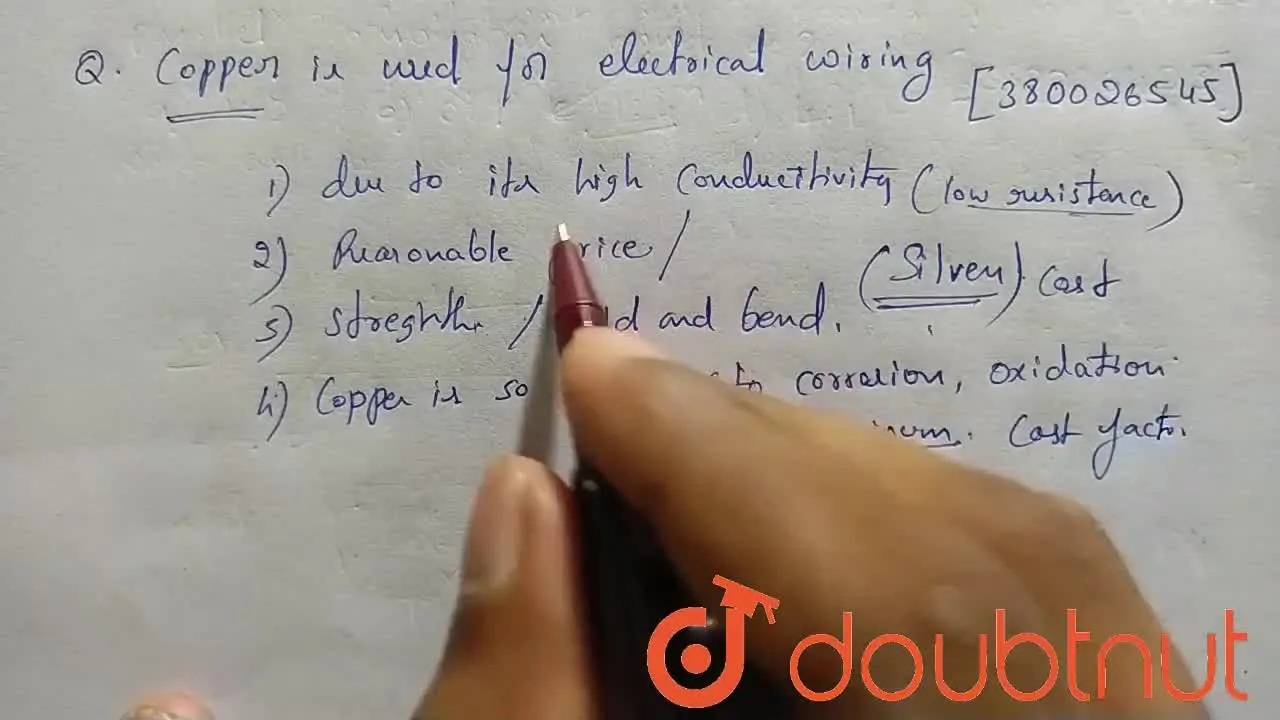 Q. Copper is used for electrical wiring [380026545]
1) due to its high Conductivity (low resistance)
2) Reasonable price /
(Silver) Cost
3) streghth / and bend.
4) Copper is so to corrosion, oxidation
Cost factor.
doubtnut